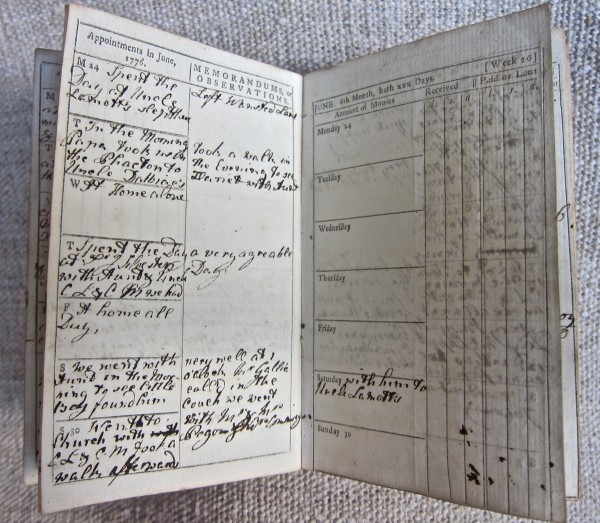 Appointments in June,
1776.
M 24 Spent the
Day at Uncle
Lamotts
T In the Morning
Papa took
the Phaeton to
Uncle
W At Home alone
T Spent the Day
at
with Aunt & Uncle
C L & C M we had
F At home all
Day,
S We went with
Aunt in the Mor
ning to see little
Boy found him
S 30 Went to
Church with
C L & C M took a
walk afterward
MEMORANDUMS, or
OBSERVATIONS.
Left Wansted Lane
took a walk in
the Evening to see
Harriet with Aunt
a very agreable
Day
very well at 1
o'clock Mr
called in the
Coach we went
with
JUNE, 6th Month, hath xxx Days.
[Week 26]
Account of Monies
Received
Paid or Lent
Monday 24
Tuesday
Wednesday
Thursday
Friday
Saturday with him to
Uncle Lamotts
Sunday 30